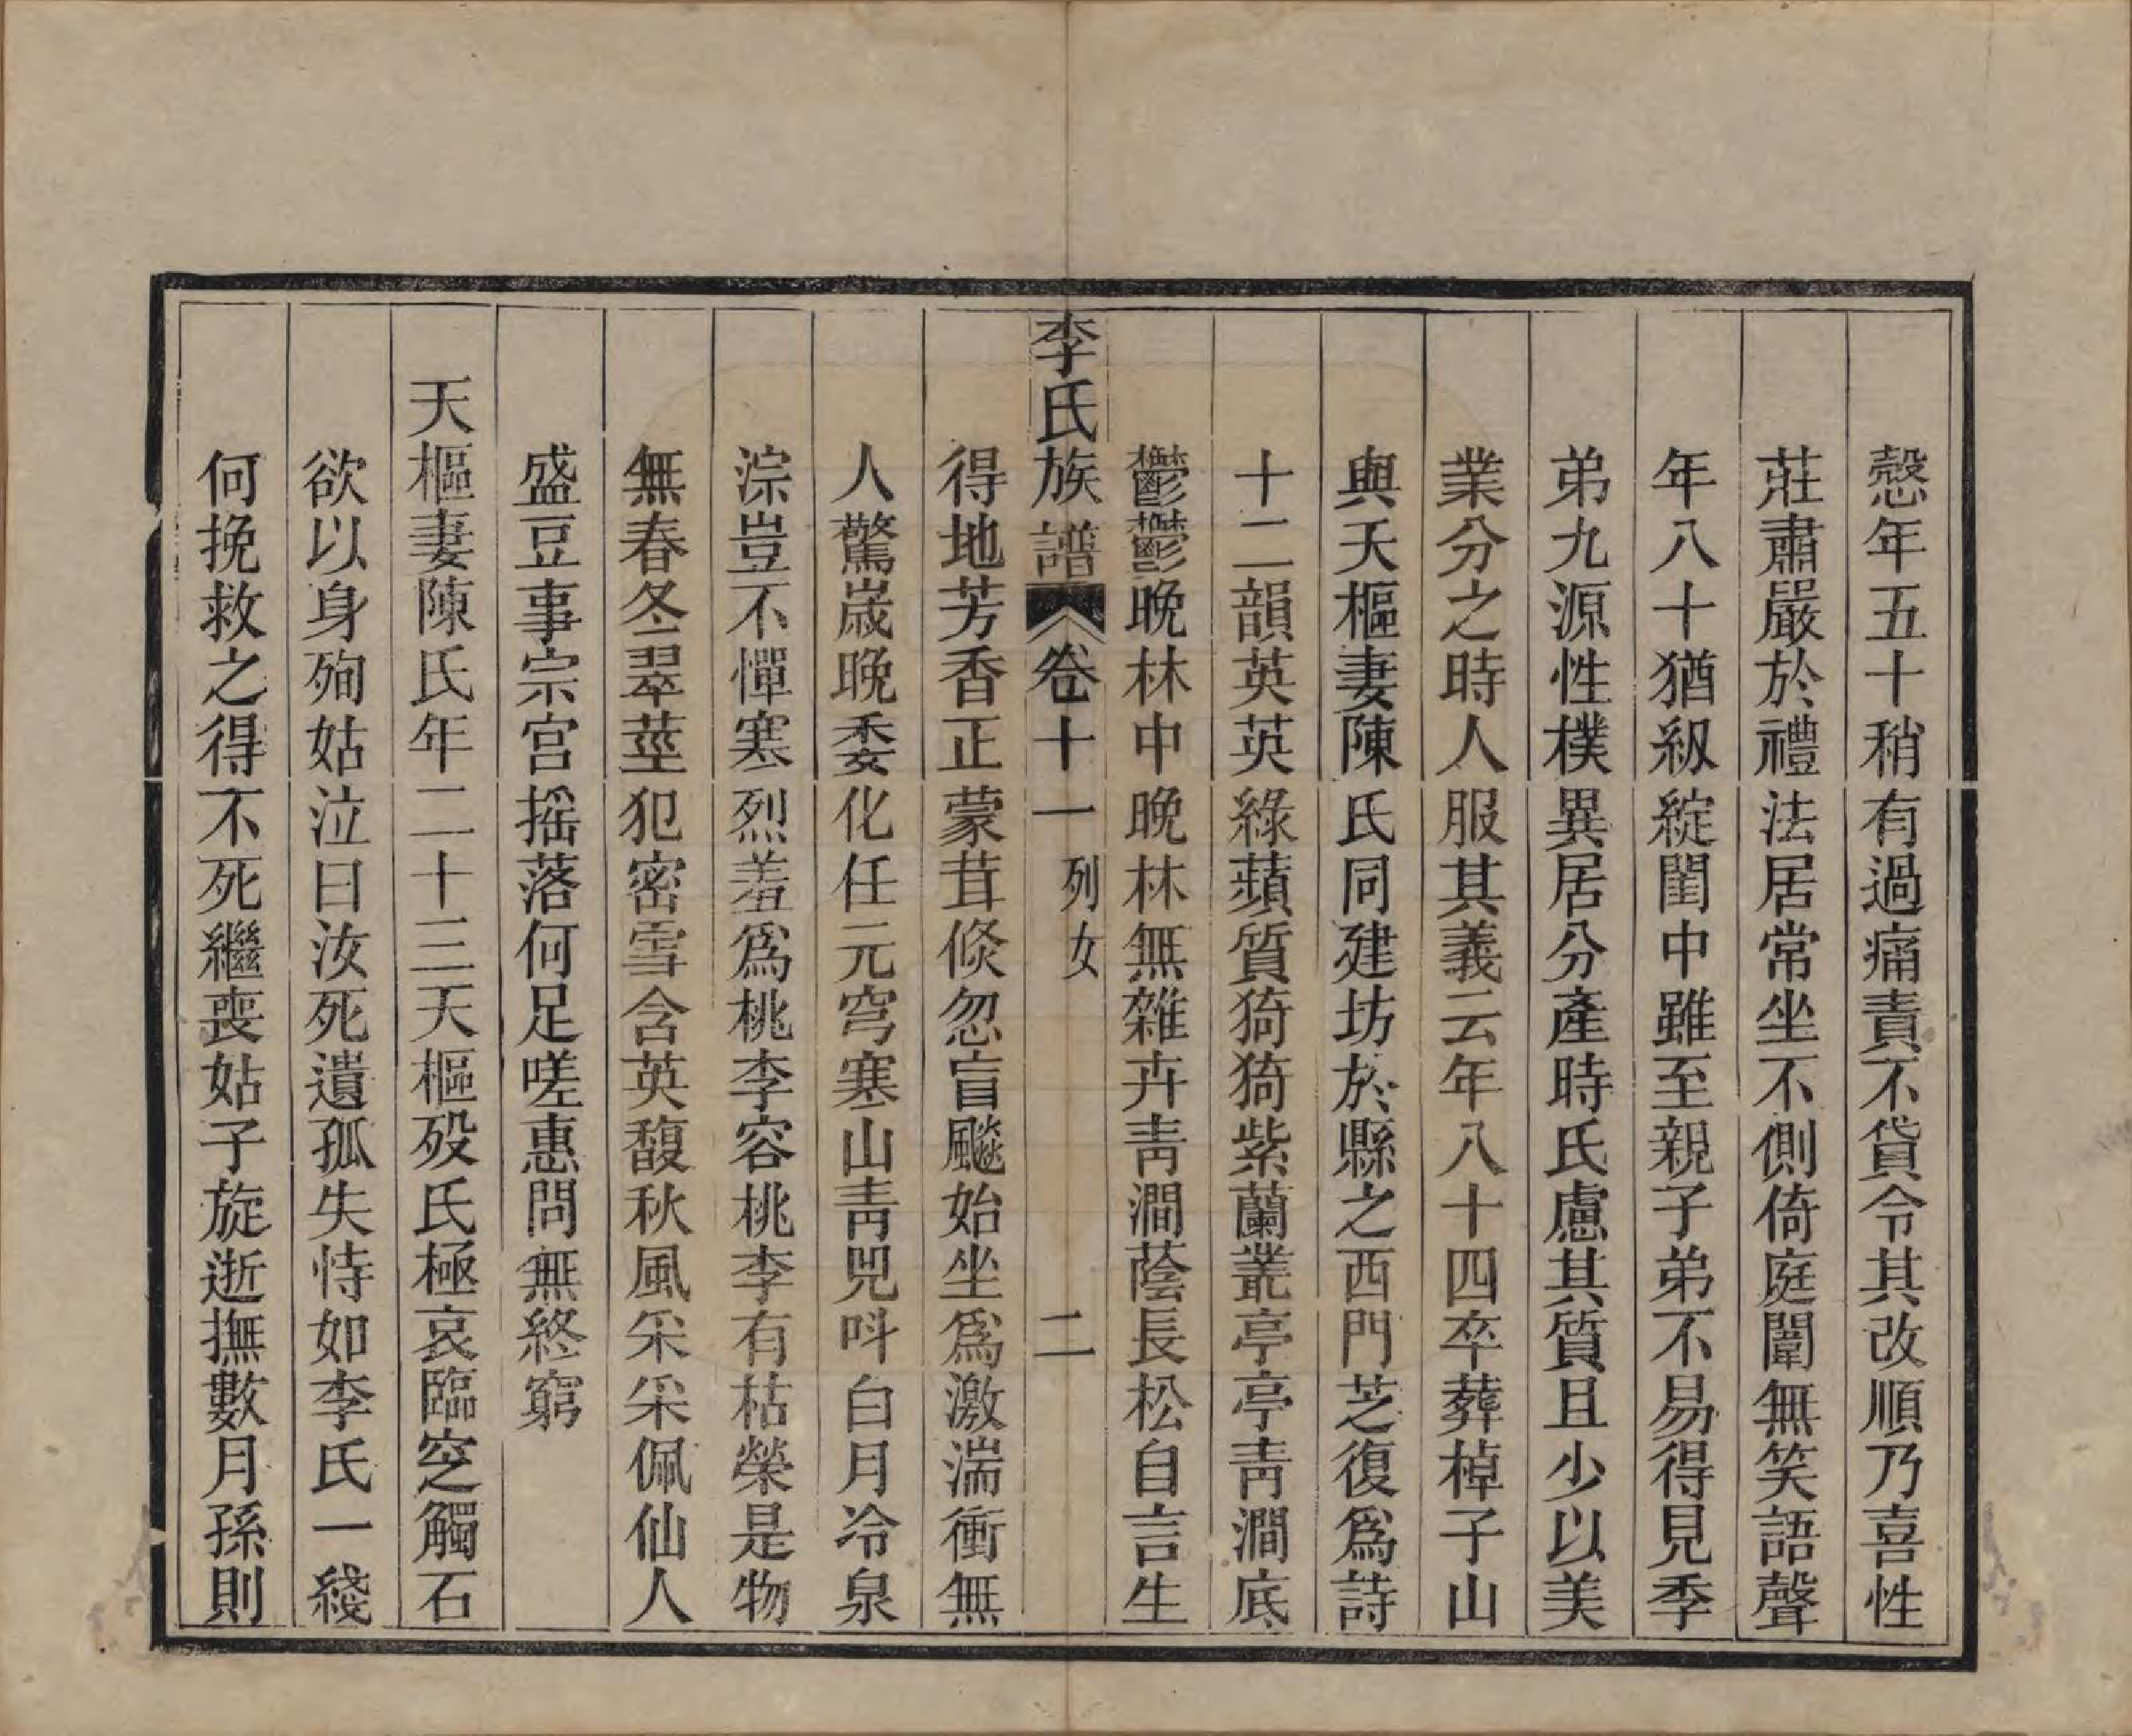 慤年五十稍有過痛責不貸令其改順乃喜性
莊肅嚴於禮法居常坐不側倚庭闈無笑語聲
年八十猶級綻閨中雖至親子弟不易得見季
弟九源性樸異居分產時氏慮其質且少以美
業分之時人服其義云年八十四卒葬棹子山
與天樞妻陳氏同建坊於縣之西門芝復爲詩
十二韻英英綠蘋質猗猗紫蘭叢亭亭青澗底
鬱鬱晚林中晚林無雜卉青澗蔭長松自言生
李氏族譜 卷十一 列女 二
得地芳香正蒙茸倏忽盲飈始坐爲激湍衝無
人驚嵗晚委化任元穹寒山青兕呌白月冷泉
淙豈不憚寒烈羞爲桃李容桃李有枯榮是物
無春冬翠莖犯密雪含英馥秋風采采佩仙人
盛豆事宗宫摇落何足嗟惠問無終窮
天樞妻陳氏年二十三天樞殁氏極哀臨窆觸石
欲以身殉姑泣曰汝死遺孤失恃如李氏一綫
何挽救之得不死繼喪姑子旋逝撫數月孫則